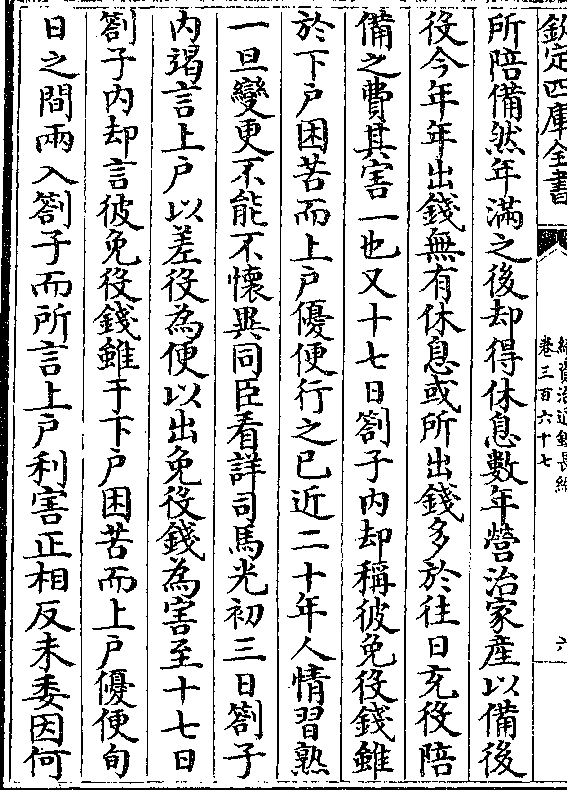 欽定四庫全書
卷三百六十七
六
所陪備然年滿之後却得休息數年營治家産以備後
役今年年出錢無有休息或所出錢多於往日充役陪
備之費其害一也又十七日劄子内却稱彼免役錢雖
於下户困苦而上户優便行之已近二十年人情習熟
一旦變更不能不懷異同臣看詳司馬光初三日劄子
内竭言上户以差役為便以出免役錢為害至十七日
劄子内却言彼免役錢雖于下户困苦而上户優便旬
日之間兩入劄子而所言上户利害正相反未委因何